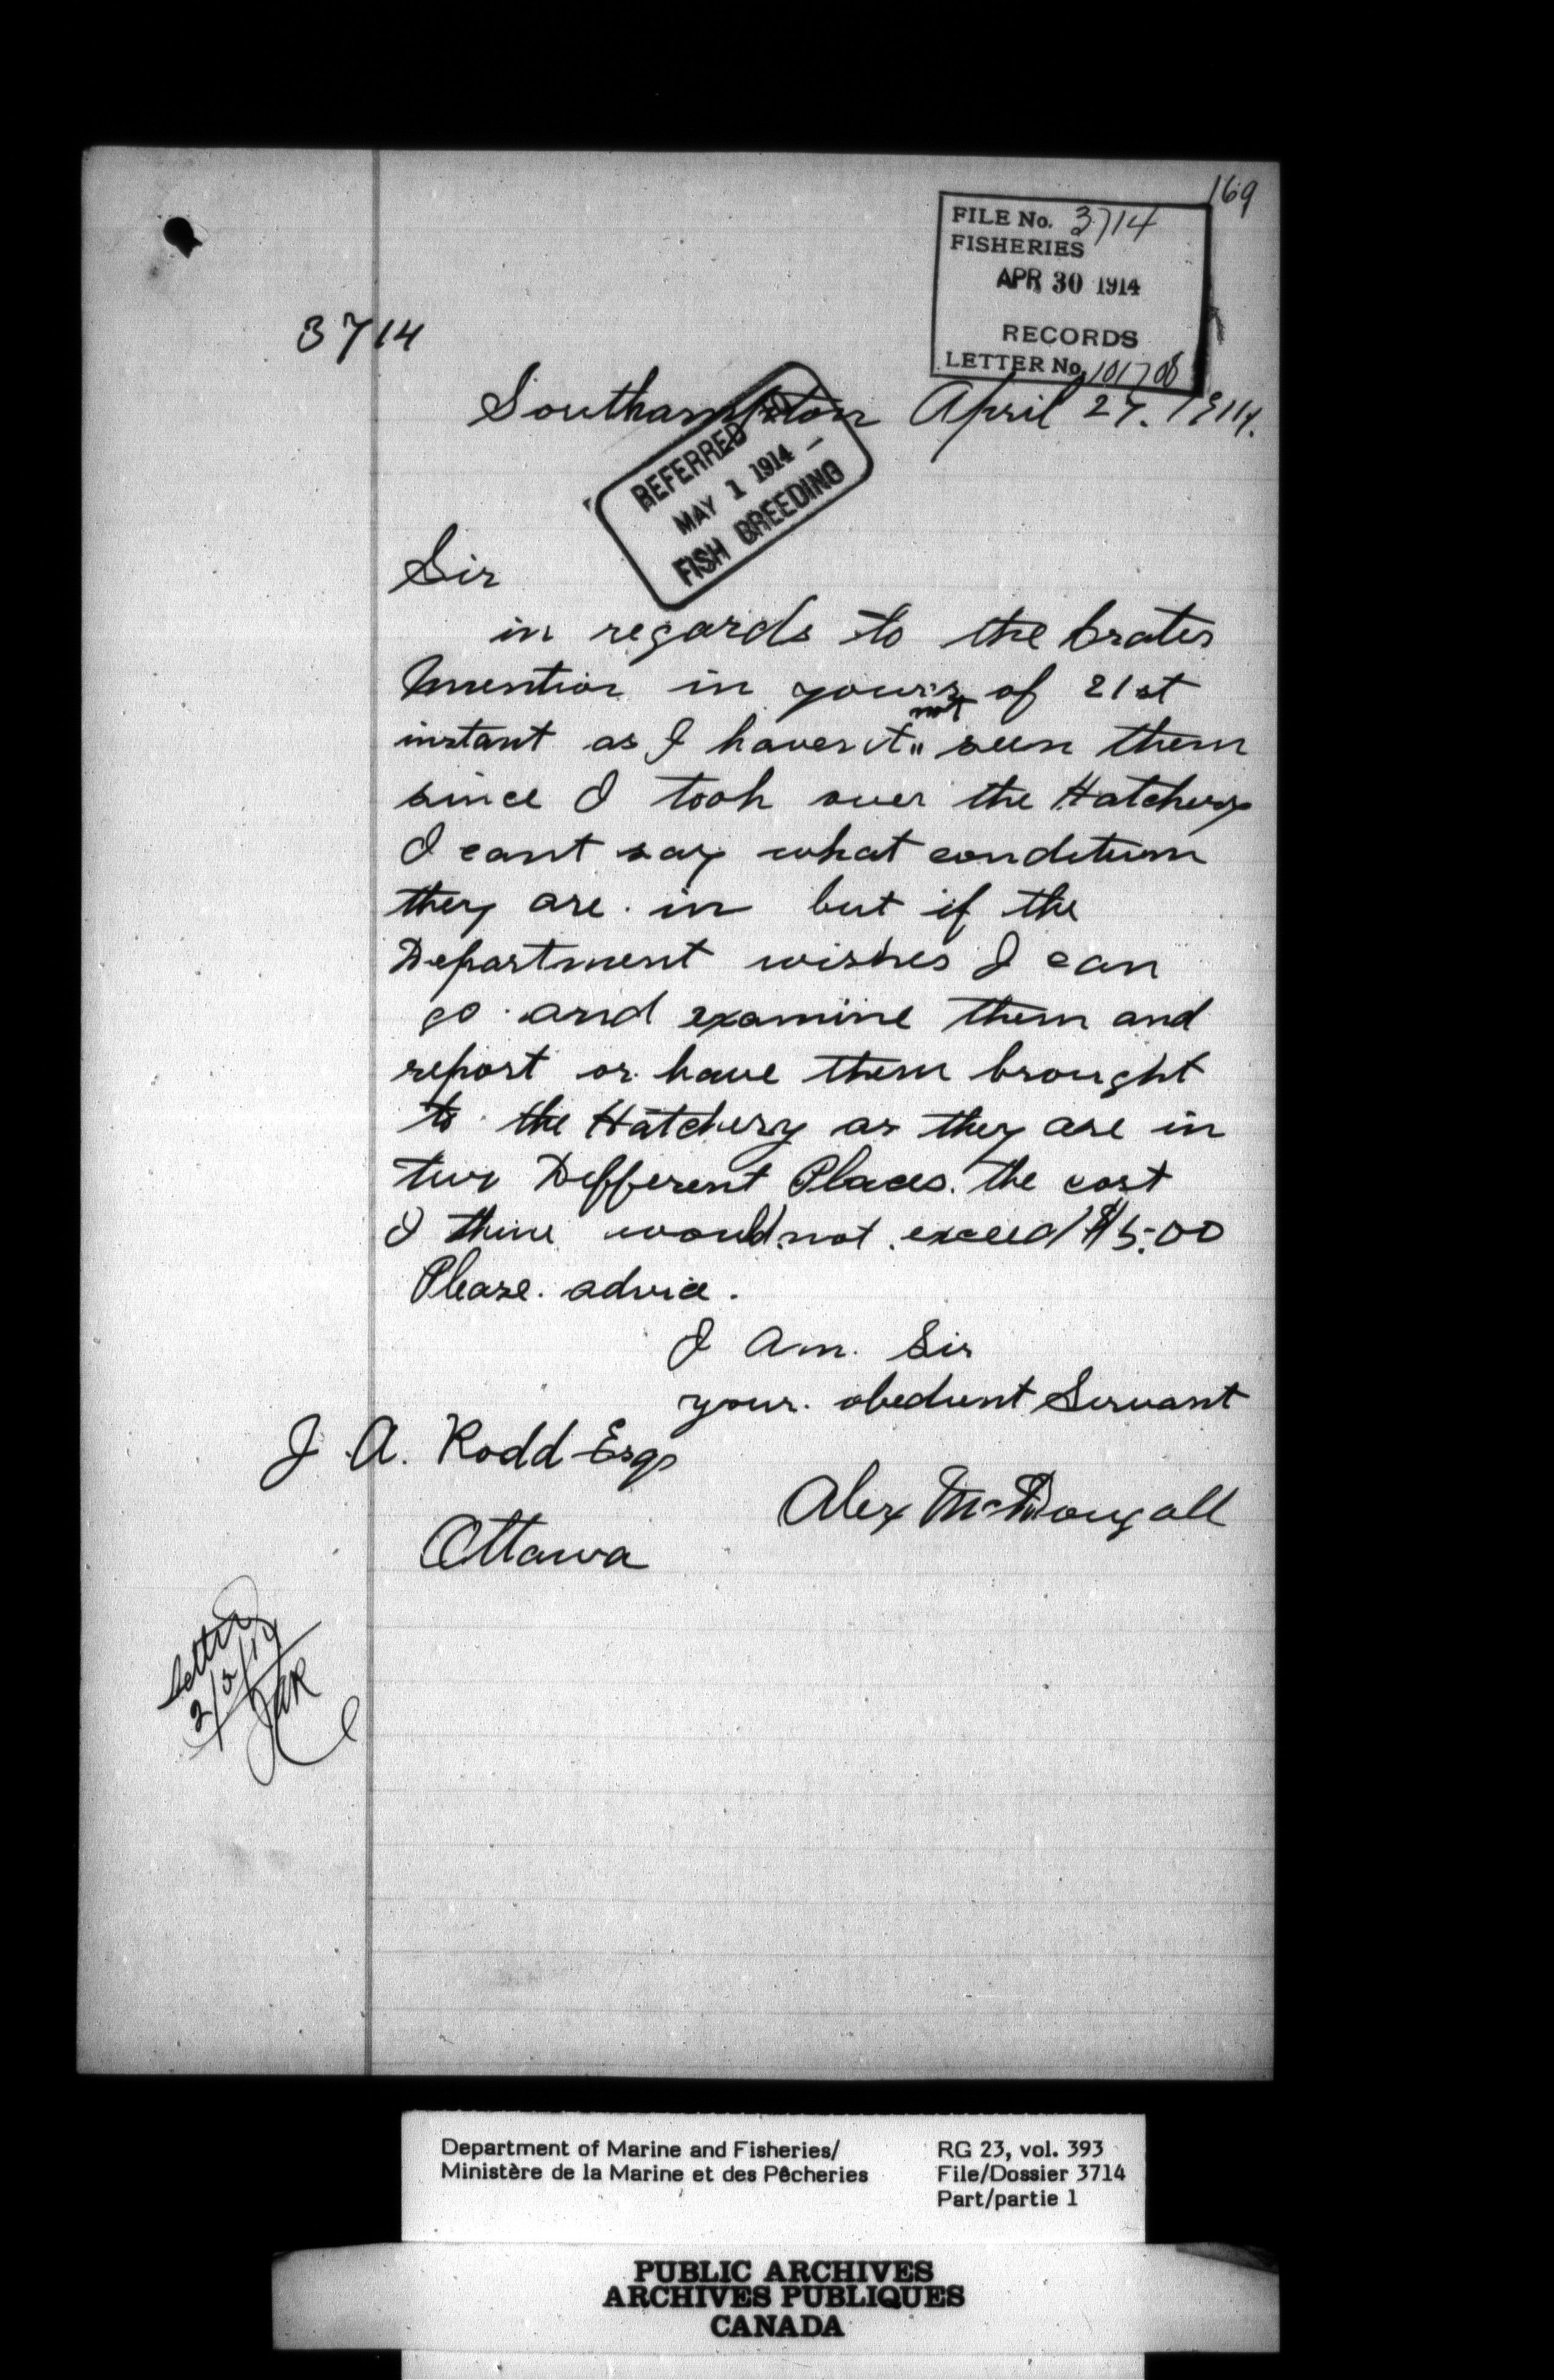 169
FILE No. 3714
FISHERIES
APR 30 1914
RECORDS
LETTER No. 101708
3714
Southampton April 27. 1914.
REFERRED TO
MAY 1 1914
FISH BREEDING
Sir
in regards to the Crates
Mention in yours of 21st
instant as I haven't not seen them
since I took over the Hatchery
I cant say what condition
they are in but if the
Department wishes I can
go and examine them and
report or have them brought
to the Hatchery as they are in
two Different Places. the cost
I think would not exceed $5.00
Please. advice.
I am. Sir
your. obedient Servant
J. A. Rodd Esqr
Alex McDougall
Ottawa
Letter
2/5/14
JAR
Department of Marine and Fisheries/
Ministère de la Marine et des Pêcheries
RG 23, vol. 393
File/Dossier 3714
Part/partie 1
PUBLIC ARCHIVES
ARCHIVES PUBLIQUES
CANADA